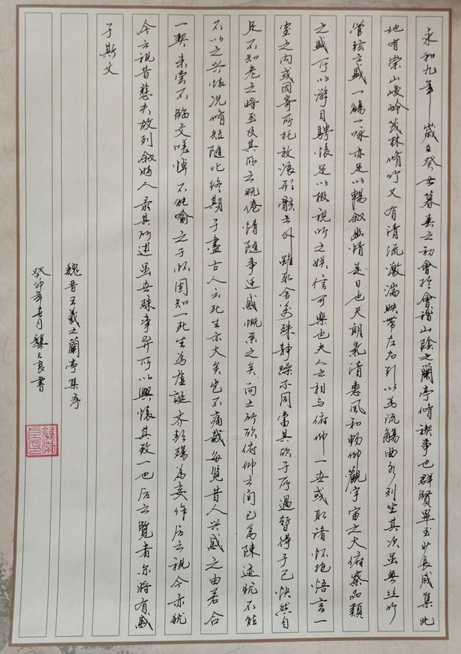 永和九年歲在癸丑暮春之初會於會稽山陰之蘭亭脩禊事也群賢畢至少長咸集此
地有崇山峻嶺茂林脩竹又有清流激湍映帶左右引以為流觴曲水列坐其次雖無絲竹
管弦之盛一觴一詠亦足以暢敘幽情是日也天朗氣清惠風和暢仰觀宇宙之大俯察品類
之盛所以遊目騁懷足以極視聽之娛信可樂也夫人之相與俯仰一世或取諸懷抱悟言一
室之內或因寄所托放浪形骸之外雖取舍萬殊靜躁不同當其欣於所遇暫得于己快然自
足不知老之將至及其所之既倦情隨事遷感慨係之矣向之所欣俯仰之間已為陳迹猶不能
不以之興懷況脩短隨化終期于盡古人云死生亦大矣豈不痛哉每覽昔人興感之由若合
一契未嘗不臨文嗟悼不能喻之于懷固知一死生為虛誕齊彭殤為妄作後之視今亦猶
今之視昔悲夫故列敘時人錄其所述雖世殊事異所以興懷其致一也後之覽者亦將有感
于斯文
魏晉王羲之蘭亭集序
癸卯年月書